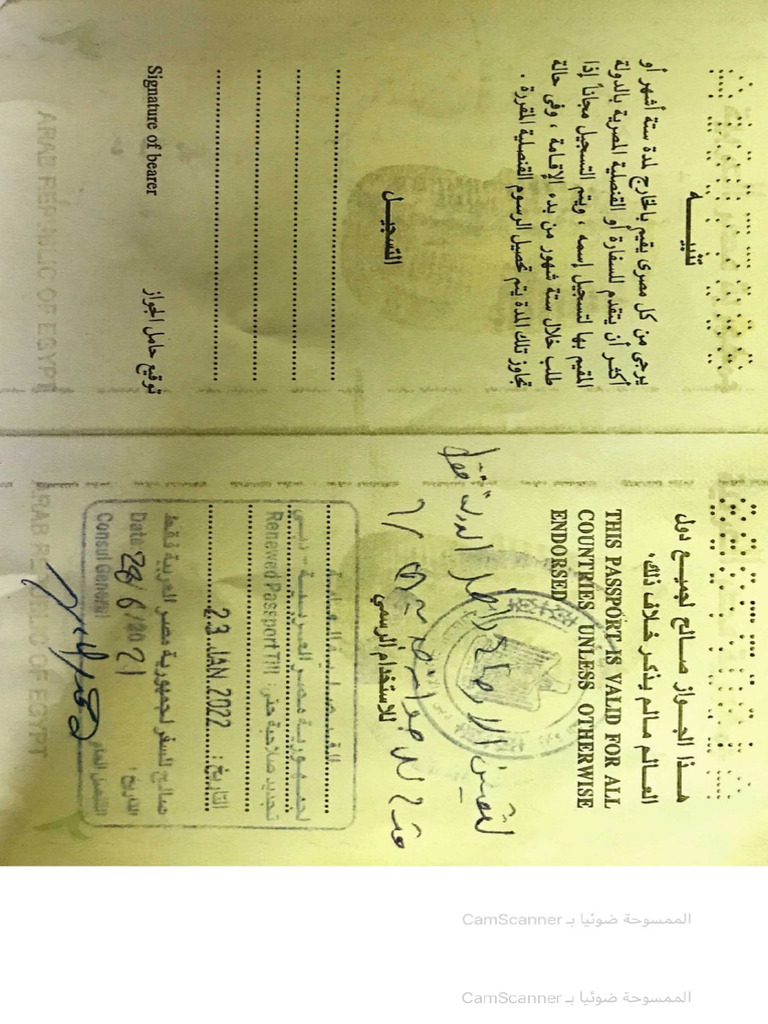 تنبيـــه
يرجى من كل مصرى يقيم بالخارج لمدة ستة أشهر أو
أكثر أن يتقدم للسفارة أو القنصلية المصرية بالدولة
المقيم بها لتسجيل إسمه ، ويتم التسجيل مجاناً إذا
طلب خلال ستة شهور من بدء الإقامة ، وفى حالة
تجاوز تلك المدة يتم تحصيل الرسوم القنصلية المقررة .
التسجيـل
Signature of bearer
توقيع حامل الجواز
ARAB REPUBLIC OF EGYPT
هـذا الجـواز صـالح لجميـع دول
العـالم مـالم يذكـر خـلاف ذلك.
THIS PASSPORT IS VALID FOR ALL
COUNTRIES UNLESS OTHERWISE
ENDORSED
للاستخدام الرسمي
تجديد صلاحية حتى :
Renewed Passport Till :
23 JAN 2022
التاريخ :
صالح للسفر لجمهورية مصر العربية فقط
Date 28/6/2021
التاريخ :
Consul General
القنصل العام
ARAB REPUBLIC OF EGYPT
الممسوحة ضوئيا بـ CamScanner
الممسوحة ضوئيا بـ CamScanner